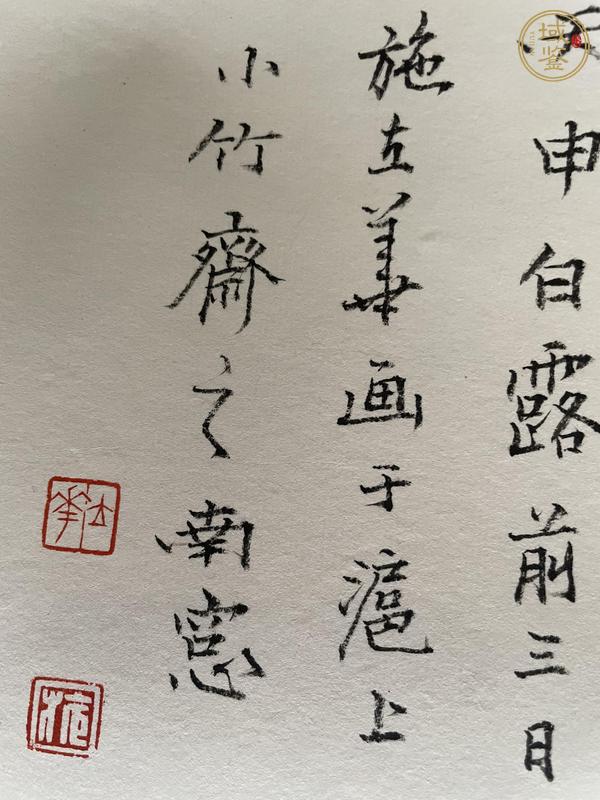 申白露前三日
施立華画于滬上
小竹齋之南窓
立華
域鉴